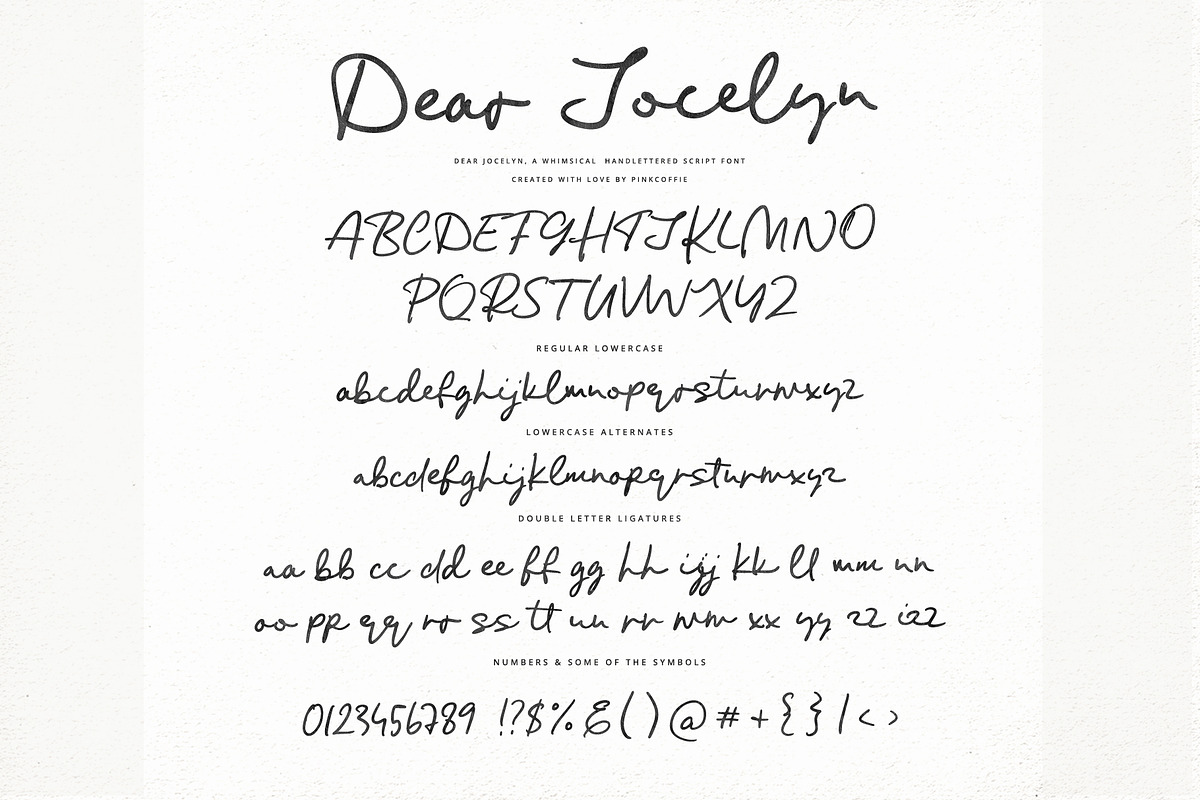 Dear Jocelyn
DEAR JOCELYN, A WHIMSICAL HANDLETTERED SCRIPT FONT
CREATED WITH LOVE BY PINKCOFFIE
ABCDEFGHIJKLMNO
PQRSTUVWXYZ
REGULAR LOWERCASE
abcdefghijklmnopqrstuvwxyz
LOWERCASE ALTERNATES
abcdefghijklmnopqrstuvwxyz
DOUBLE LETTER LIGATURES
aa bb cc dd ee ff gg hh ii jj kk ll mm nn
oo pp qq rr ss tt uu vv ww xx yy zz izz
NUMBERS & SOME OF THE SYMBOLS
0123456789 !?$%&()@#+{}|<>